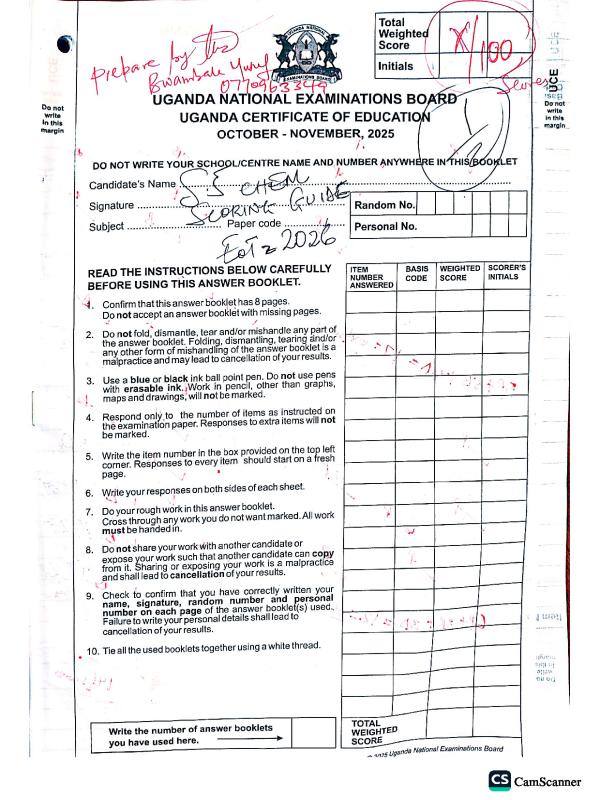 Prepare by
Bwambale Yusuf
0770963349
UGANDA NATIONAL
EXAMINATIONS BOARD
Total
Weighted
Score
X/100
Initials
Scores
UCE
Do not
write
in this
margin
Do not
write
in this
margin
UGANDA NATIONAL EXAMINATIONS BOARD
UGANDA CERTIFICATE OF EDUCATION
OCTOBER - NOVEMBER, 2025
DO NOT WRITE YOUR SCHOOL/CENTRE NAME AND NUMBER ANYWHERE IN THIS BOOKLET
Candidate's Name S3 CHEM
Signature SCORING GUIDE
Random No.
Subject Paper code
Personal No.
EoT 2 2026
READ THE INSTRUCTIONS BELOW CAREFULLY
BEFORE USING THIS ANSWER BOOKLET.
ITEM NUMBER ANSWERED
BASIS CODE
WEIGHTED SCORE
SCORER'S INITIALS
1. Confirm that this answer booklet has 8 pages.
Do not accept an answer booklet with missing pages.
2. Do not fold, dismantle, tear and/or mishandle any part of
the answer booklet. Folding, dismantling, tearing and/or
any other form of mishandling of the answer booklet is a
malpractice and may lead to cancellation of your results.
3. Use a blue or black ink ball point pen. Do not use pens
with erasable ink. Work in pencil, other than graphs,
maps and drawings, will not be marked.
4. Respond only to the number of items as instructed on
the examination paper. Responses to extra items will not
be marked.
5. Write the item number in the box provided on the top left
corner. Responses to every item should start on a fresh
page.
6. Write your responses on both sides of each sheet.
7. Do your rough work in this answer booklet.
Cross through any work you do not want marked. All work
must be handed in.
8. Do not share your work with another candidate or
expose your work such that another candidate can copy
from it. Sharing or exposing your work is a malpractice
and shall lead to cancellation of your results.
9. Check to confirm that you have correctly written your
name, signature, random number and personal
number on each page of the answer booklet(s) used.
Failure to write your personal details shall lead to
cancellation of your results.
10. Tie all the used booklets together using a white thread.
Write the number of answer booklets
you have used here.
TOTAL
WEIGHTED
SCORE
© 2025 Uganda National Examinations Board
CS CamScanner